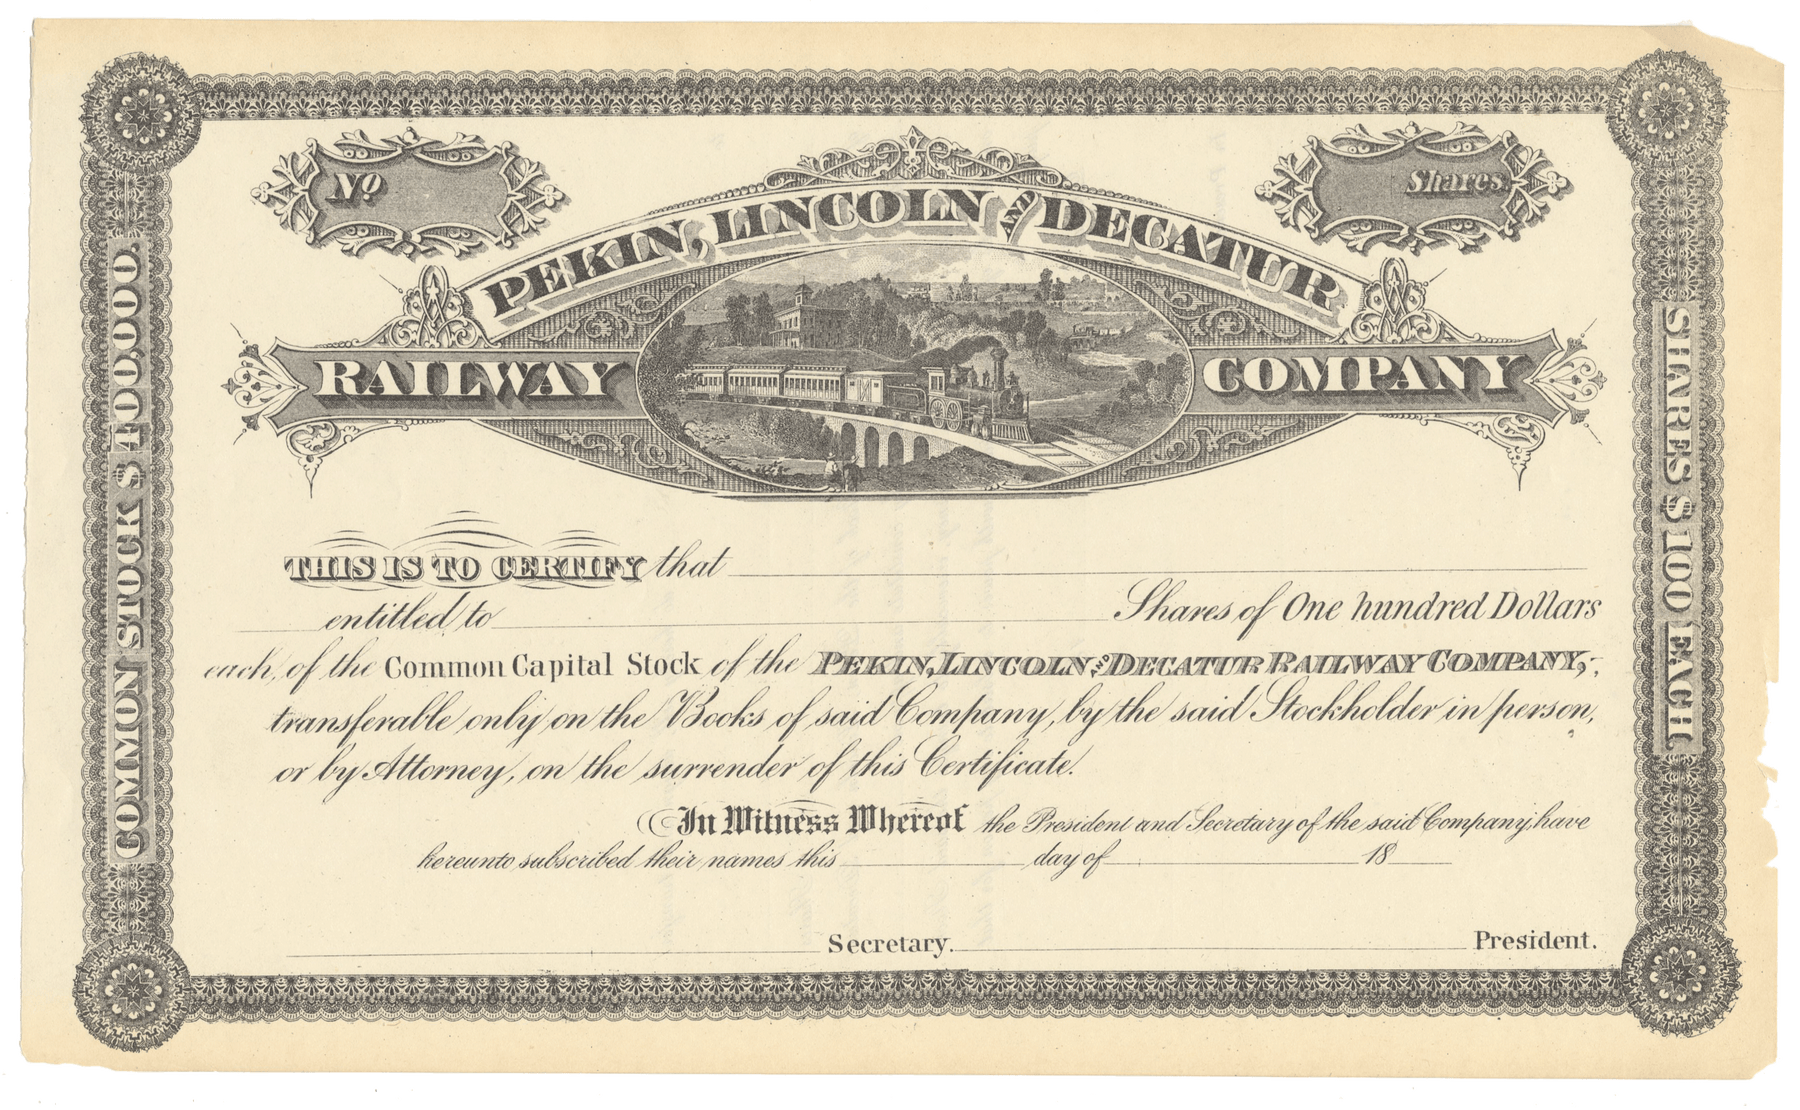 No.
Shares.
PEKIN, LINCOLN AND DECATUR
RAILWAY COMPANY
COMMON STOCK $400,000.
SHARES $100 EACH
THIS IS TO CERTIFY that
entitled to Shares of One hundred Dollars
each, of the Common Capital Stock of the PEKIN, LINCOLN AND DECATUR RAILWAY COMPANY,
transferable only on the Books of said Company, by the said Stockholder in person,
or by Attorney, on the surrender of this Certificate.
In Witness Whereof the President and Secretary of the said Company, have
hereunto subscribed their names this day of 18
Secretary. President.